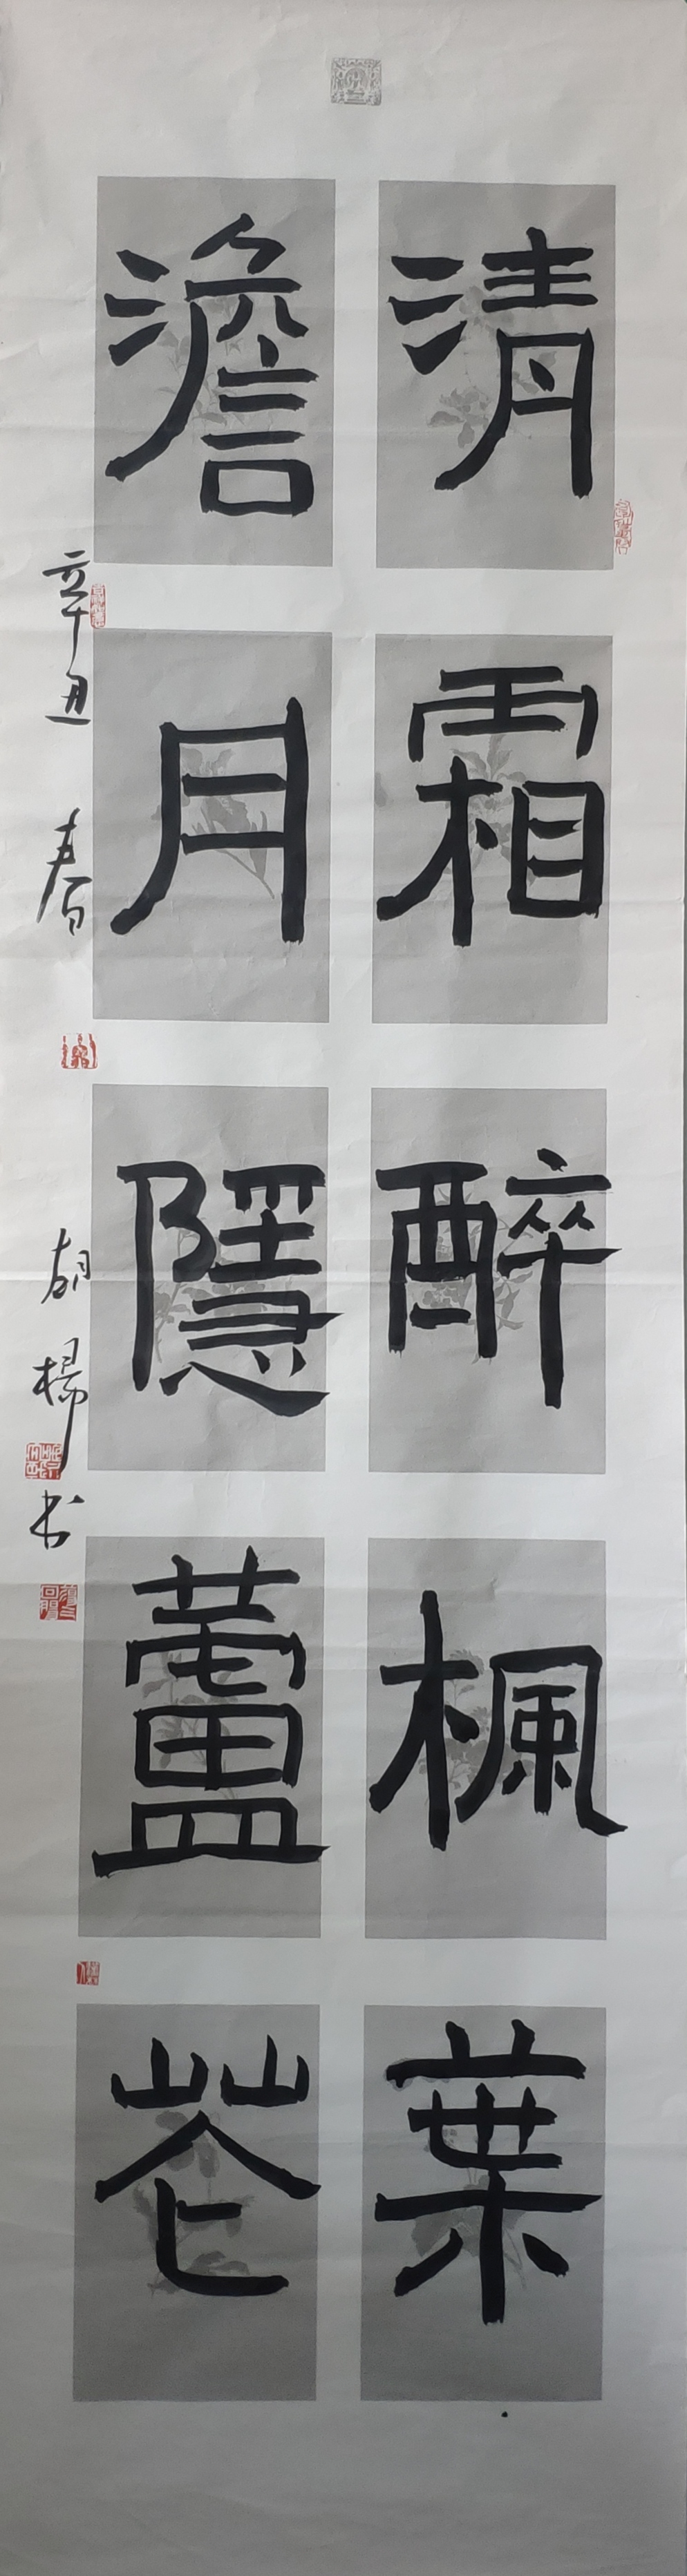 清霜醉楓葉
澹月隱蘆花
辛丑春
胡楊书